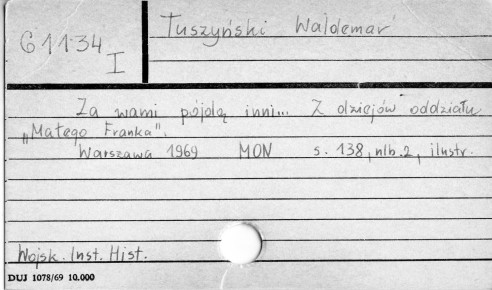 G 1134
I
Tuszyński Waldemar
Za wami pójdą inni... Z dziejów oddziału
„Małego Franka".
Warszawa 1969 MON s. 138, nlb. 2, ilustr.
Wojsk. Inst. Hist.
DUJ 1078/69 10.000